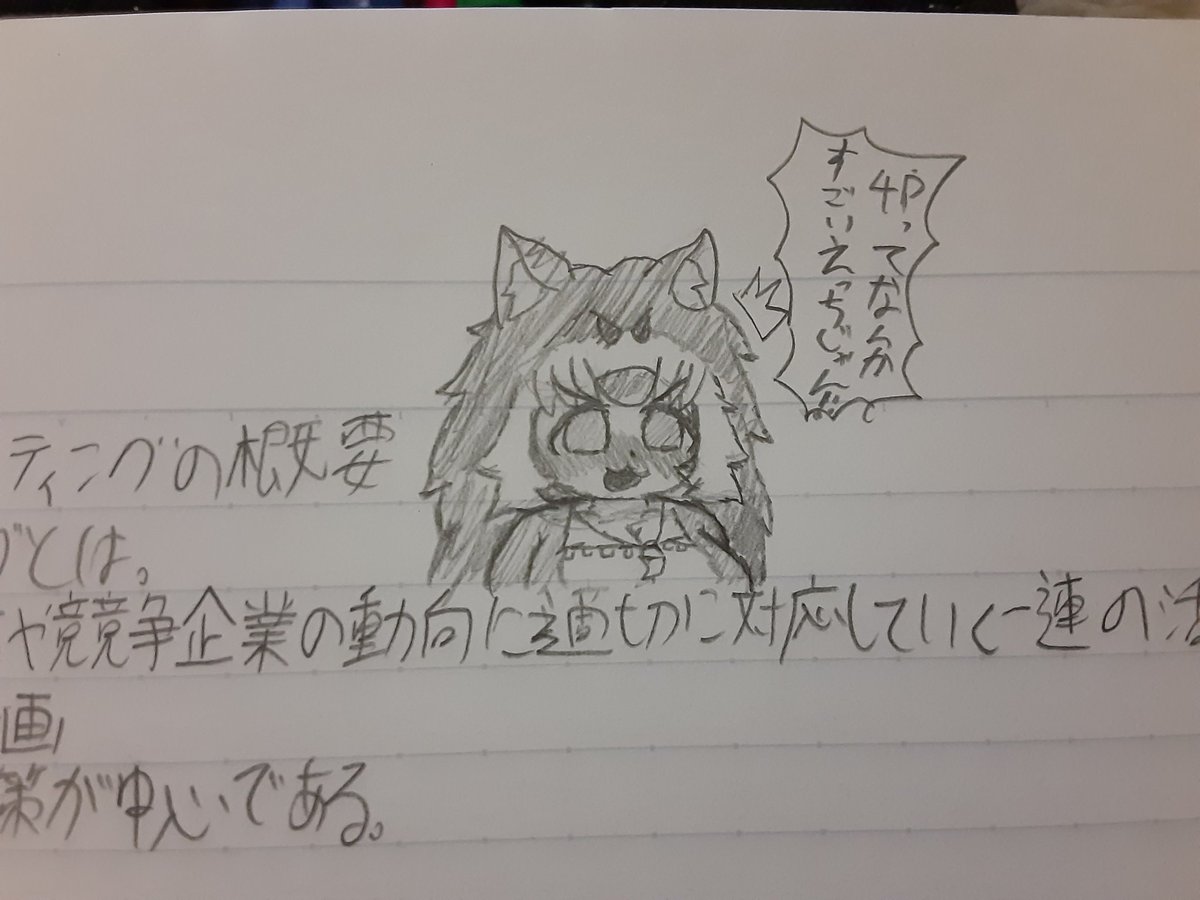 4Pってなんか
すごいえっちじゃんね
ティングの概要
グとは。
や競争企業の動向に適切に対応していく一連の活
画
策が中心である。